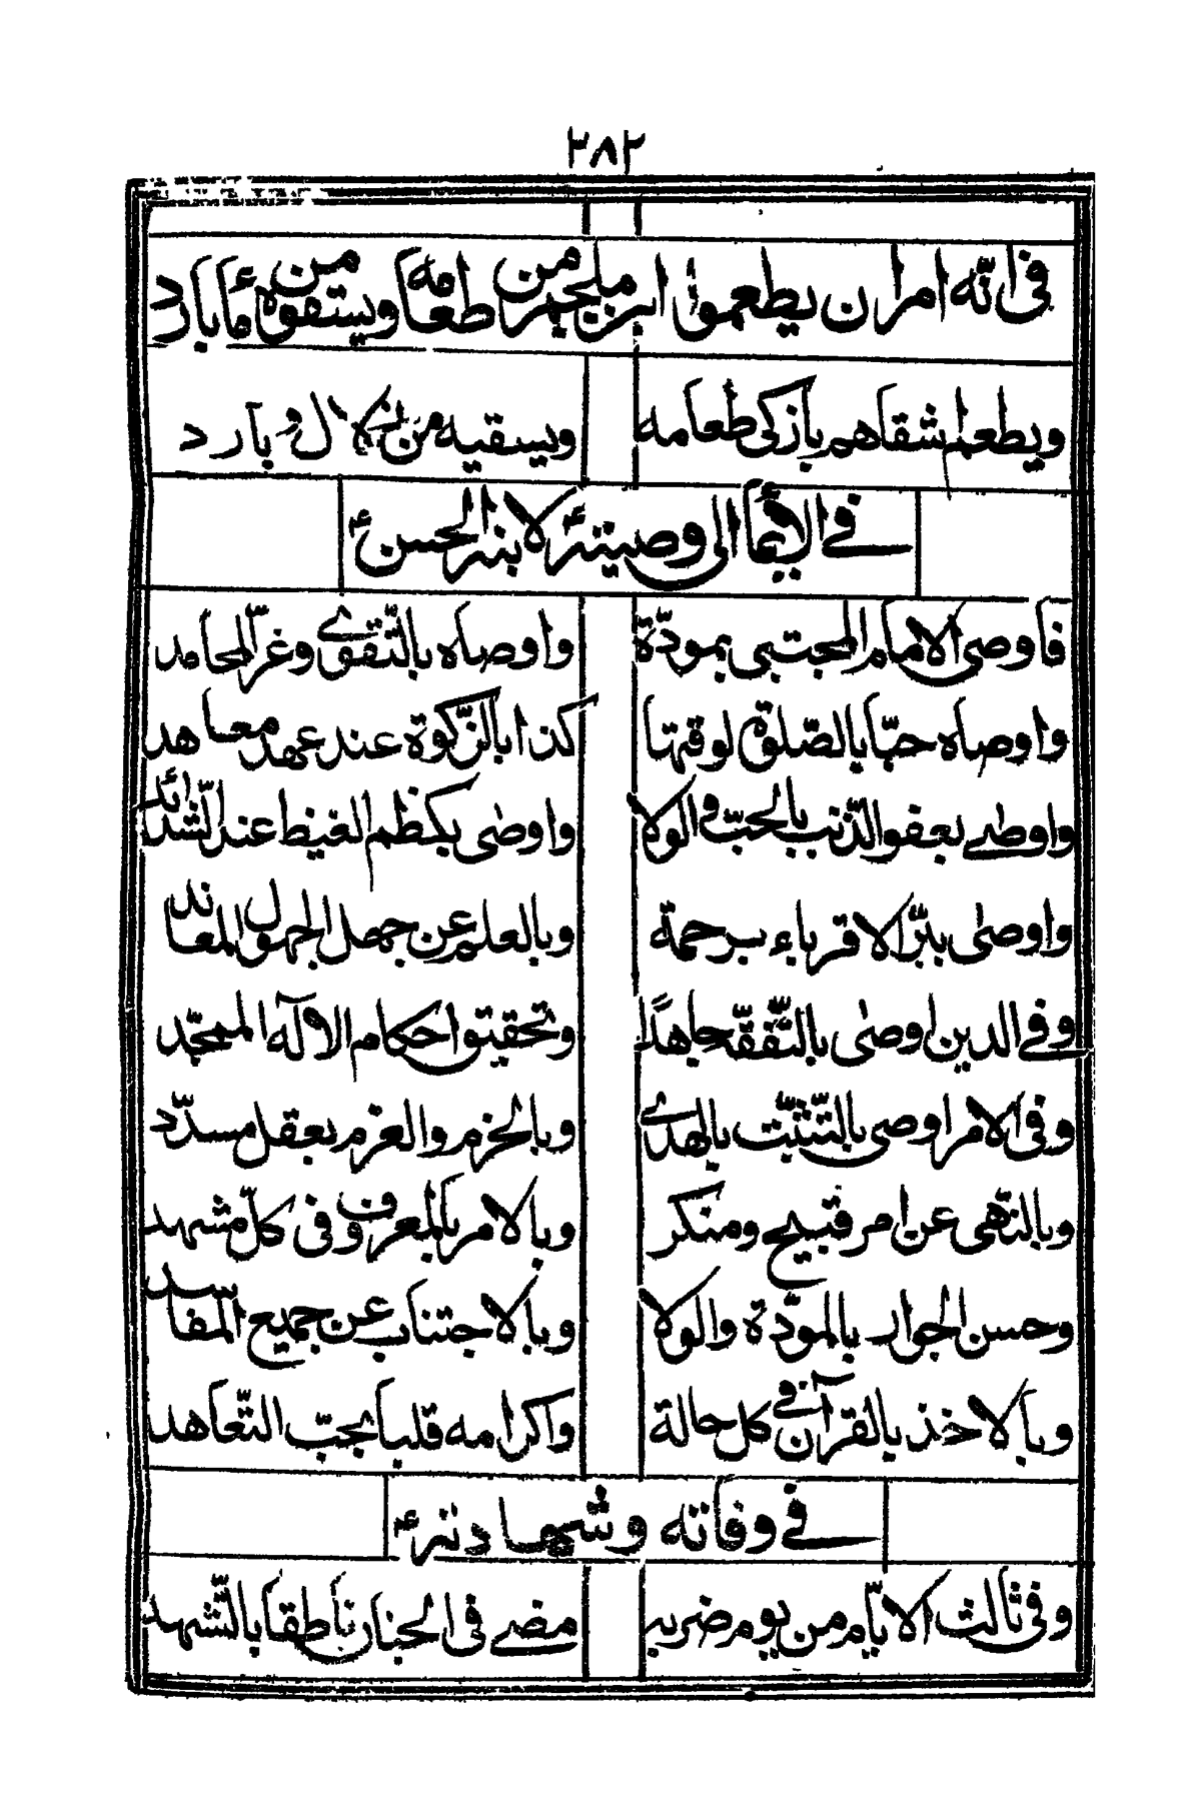 ٢٨٢
فى انّه امر ان يطعموا ابن ملجم من طعامه ويستقوه من ماء بارد
ويطعم اشقاهم بازكى طعامه ويسقيه من زلال وبارد
فى الايماء الى وصيته لابنه الحسن ع
فاوصى الامام المجتبى بمودّة واوصاه بالتّقوى وغرّ المحامد
واوصاه حبّا بالصّلوة لوقتها كذا بالزّكوة عند عهد معاهد
واوصى بعفو الذّنب بالحبّ والولا واوصى بكظم الغيظ عند الشّدائد
واوصى ببرّ الاقرباء برحمة وبالعلم عن جهل الجهول المعاند
وفى الدين اوصى بالتّفقّه جاهدًا وتحقيق احكام الاله الممجّد
وفى الامر اوصى بالتّثبّت بالهدى وبالحزم والعزم بعقل مسدّد
وبالنّهى عن امر قبيح ومنكر وبالامر بالمعروف فى كلّ مشهد
وحسن الجوار بالمودّة والولا وبالاجتناب عن جميع المفاسد
وبالاخذ بالقرآن فى كل حالة واكرامه قلبا بحبّ التّعاهد
فى وفاته وشهادته ع
وفى ثالث الايّام من يوم ضربه مضى فى الجنان ناطقا بالتّشهد